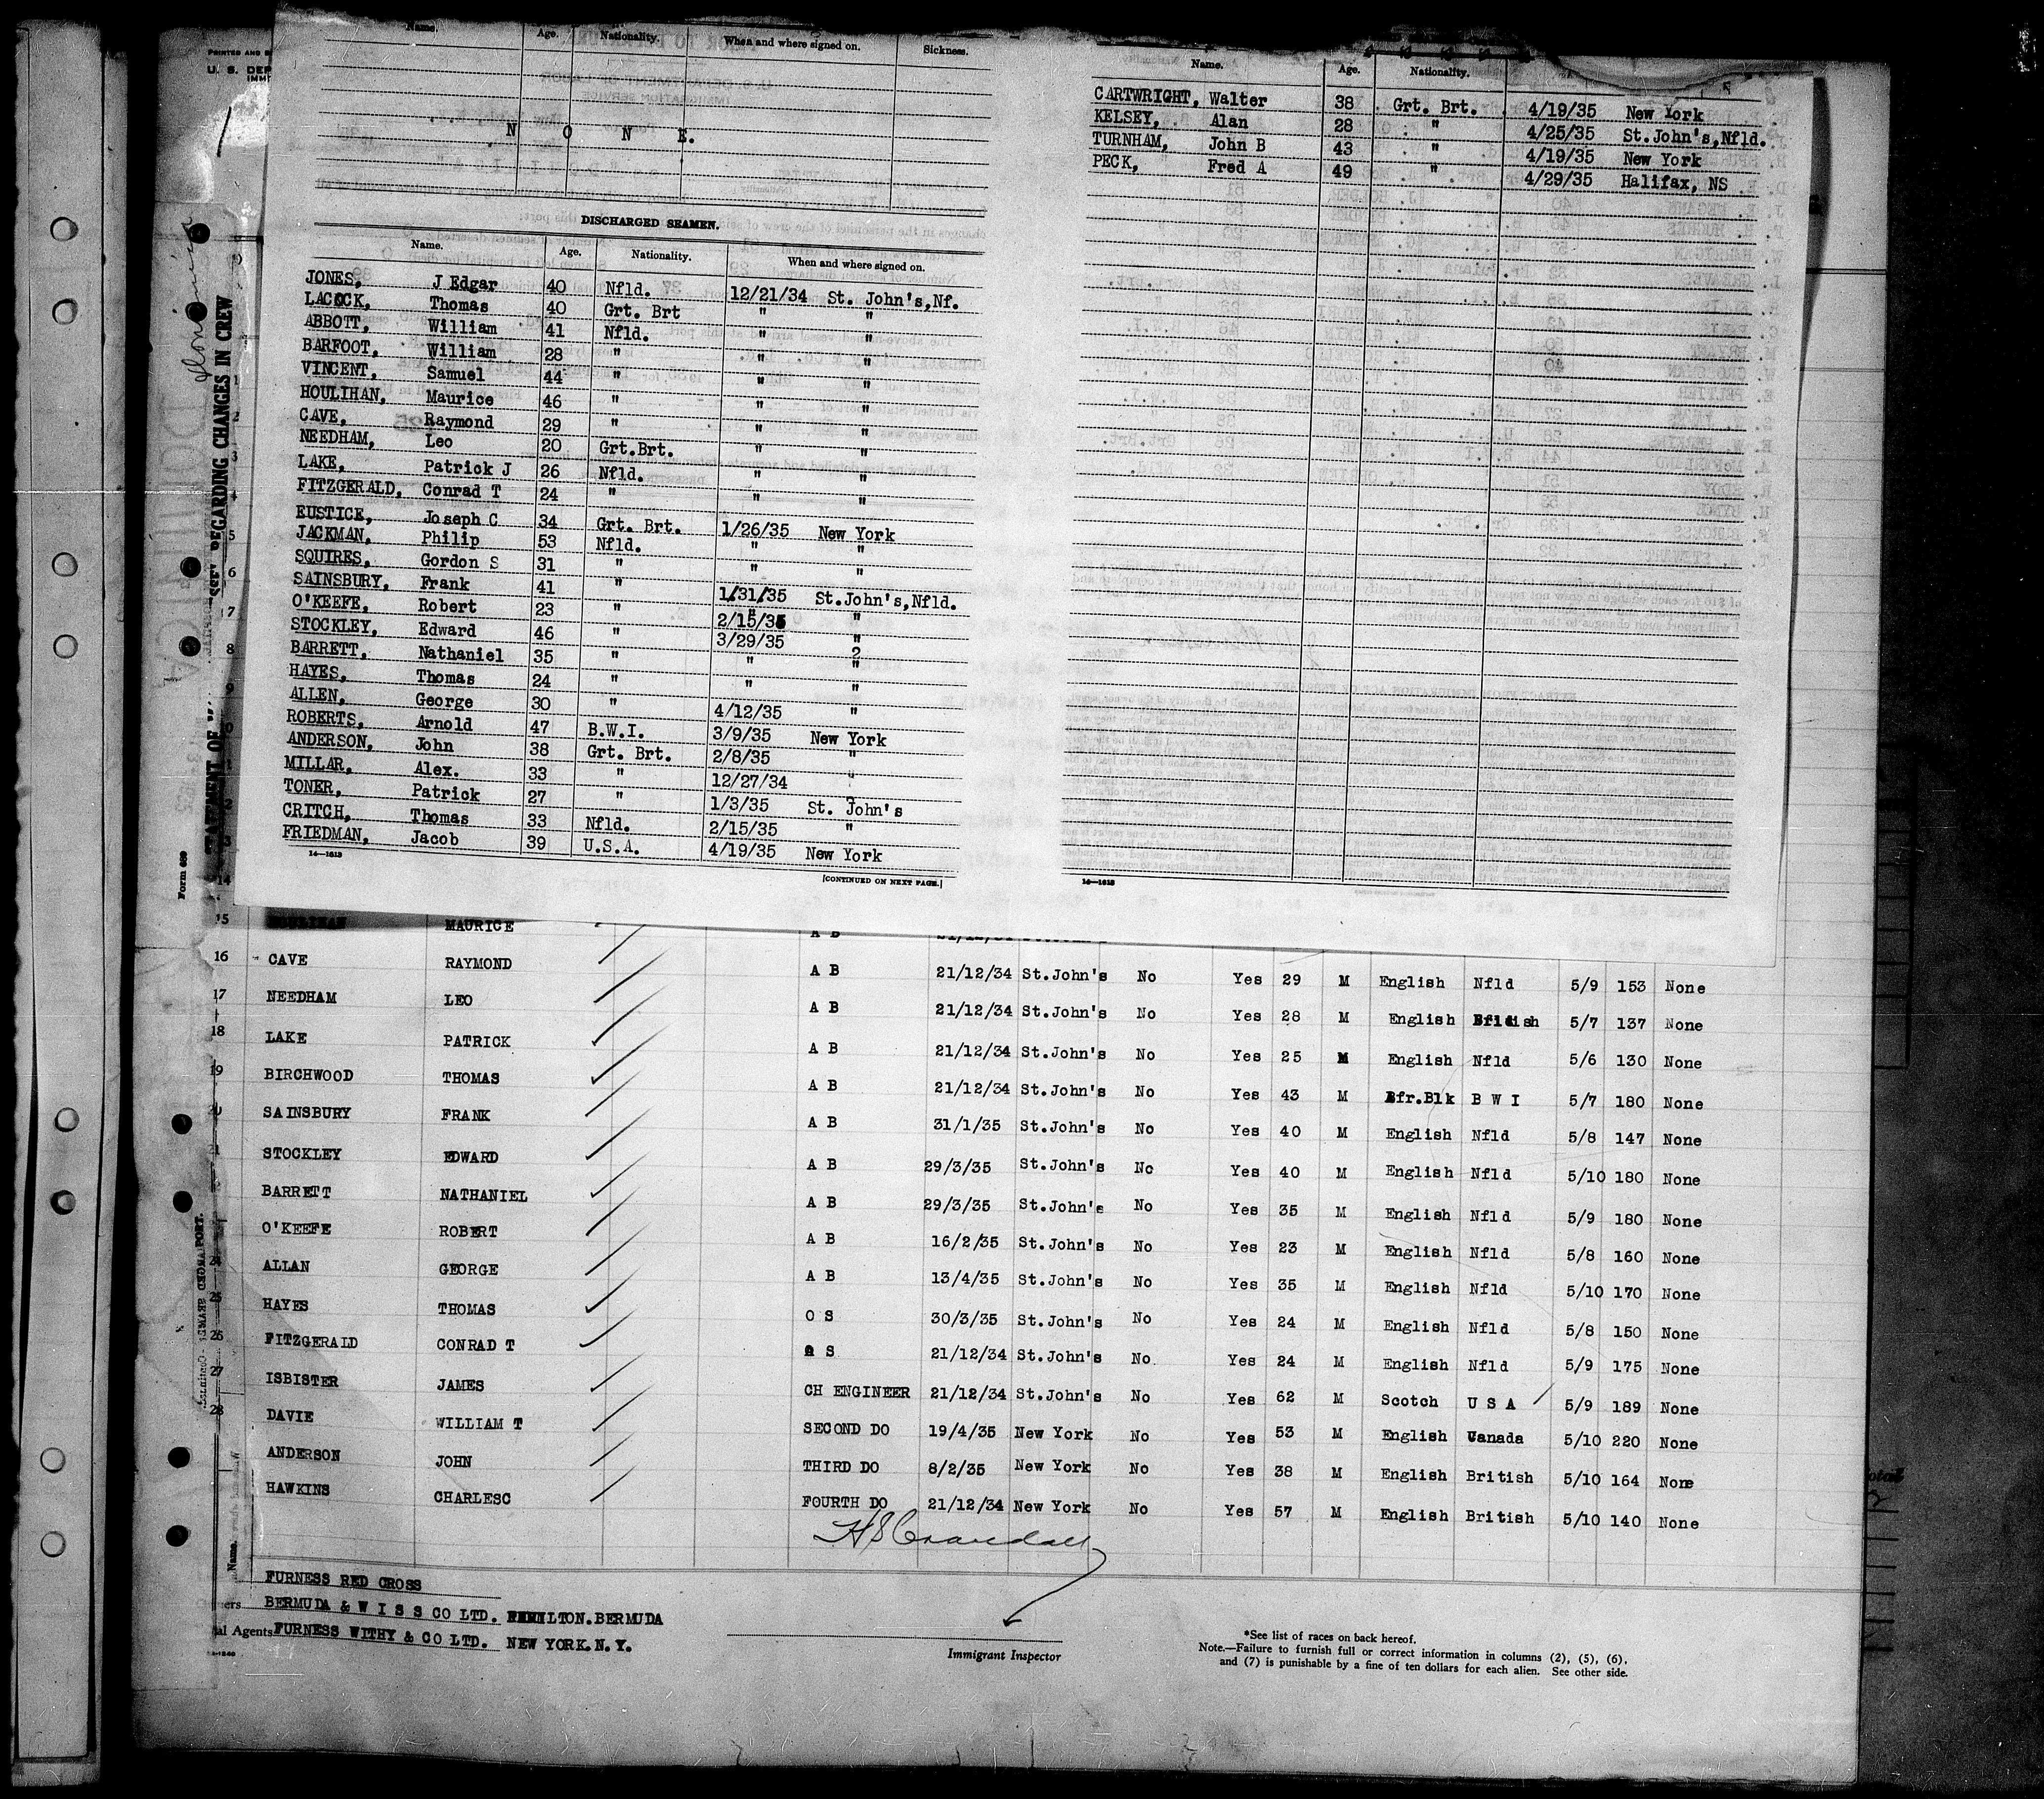 PRINTED AND
U. S. DEP
IMMI
Name. Age. Nationality. When and where signed on. Sickness.
N O N E.
DISCHARGED SEAMEN.
Name. Age. Nationality. When and where signed on.
JONES, J Edgar 40 Nfld. 12/21/34 St. John's,Nf.
LACOCK, Thomas 40 Grt. Brt " "
ABBOTT, William 41 Nfld. " "
BARFOOT, William 28 " " "
VINCENT, Samuel 44 " " "
HOULIHAN, Maurice 46 " " "
CAVE, Raymond 29 " " "
NEEDHAM, Leo 20 Grt.Brt. " "
LAKE, Patrick J 26 Nfld. " "
FITZGERALD, Conrad T 24 " " "
EUSTICE, Joseph C 34 Grt. Brt. 1/26/35 New York
JACKMAN, Philip 53 Nfld. " "
SQUIRES, Gordon S 31 " " "
SAINSBURY, Frank 41 " 1/31/35 St.John's,Nfld.
O'KEEFE, Robert 23 " 2/15/35 "
STOCKLEY, Edward 46 " 3/29/35 "
BARRETT, Nathaniel 35 " " "
HAYES, Thomas 24 " " "
ALLEN, George 30 " 4/12/35 "
ROBERTS, Arnold 47 B.W.I. 3/9/35 New York
ANDERSON, John 38 Grt. Brt. 2/8/35 "
MILLAR, Alex. 33 " 12/27/34 "
TONER, Patrick 27 " 1/3/35 St. John's
CRITCH, Thomas 33 Nfld. 2/15/35 "
FRIEDMAN, Jacob 39 U.S.A. 4/19/35 New York
14—1613
[CONTINUED ON NEXT PAGE.]
Name. Age. Nationality.
CARTWRIGHT, Walter 38 Grt. Brt. 4/19/35 New York
KELSEY, Alan 28 " 4/25/35 St.John's,Nfld.
TURNHAM, John B 43 " 4/19/35 New York
PECK, Fred A 49 " 4/29/35 Halifax, NS
14—1613
REGARDING CHANGES IN CREW
STATEMENT OF
Form 689
15 HOULIHAN MAURICE A B
16 CAVE RAYMOND A B 21/12/34 St.John's No Yes 29 M English Nfld 5/9 153 None
17 NEEDHAM LEO A B 21/12/34 St.John's No Yes 28 M English British 5/7 137 None
18 LAKE PATRICK A B 21/12/34 St.John's No Yes 25 M English Nfld 5/6 130 None
19 BIRCHWOOD THOMAS A B 21/12/34 St.John's No Yes 43 M Afr.Blk B W I 5/7 180 None
20 SAINSBURY FRANK A B 31/1/35 St.John's No Yes 40 M English Nfld 5/8 147 None
21 STOCKLEY EDWARD A B 29/3/35 St.John's No Yes 40 M English Nfld 5/10 180 None
BARRETT NATHANIEL A B 29/3/35 St.John's No Yes 35 M English Nfld 5/9 180 None
O'KEEFE ROBERT A B 16/2/35 St.John's No Yes 23 M English Nfld 5/8 160 None
24 ALLAN GEORGE A B 13/4/35 St.John's No Yes 35 M English Nfld 5/10 170 None
25 HAYES THOMAS O S 30/3/35 St.John's No Yes 24 M English Nfld 5/8 150 None
26 FITZGERALD CONRAD T O S 21/12/34 St.John's No. Yes 24 M English Nfld 5/9 175 None
27 ISBISTER JAMES CH ENGINEER 21/12/34 St.John's No Yes 62 M Scotch U S A 5/9 189 None
28 DAVIE WILLIAM T SECOND DO 19/4/35 New York No Yes 53 M English Canada 5/10 220 None
ANDERSON JOHN THIRD DO 8/2/35 New York No Yes 38 M English British 5/10 164 None
HAWKINS CHARLESC FOURTH DO 21/12/34 New York No Yes 57 M English British 5/10 140 None
H S Crandall
FURNESS RED CROSS
BERMUDA & W I S S CO LTD. HAMILTON.BERMUDA
al Agents FURNESS WITHY & CO LTD. NEW YORK.N.Y.
Immigrant Inspector
*See list of races on back hereof.
Note.—Failure to furnish full or correct information in columns (2), (5), (6),
and (7) is punishable by a fine of ten dollars for each alien. See other side.